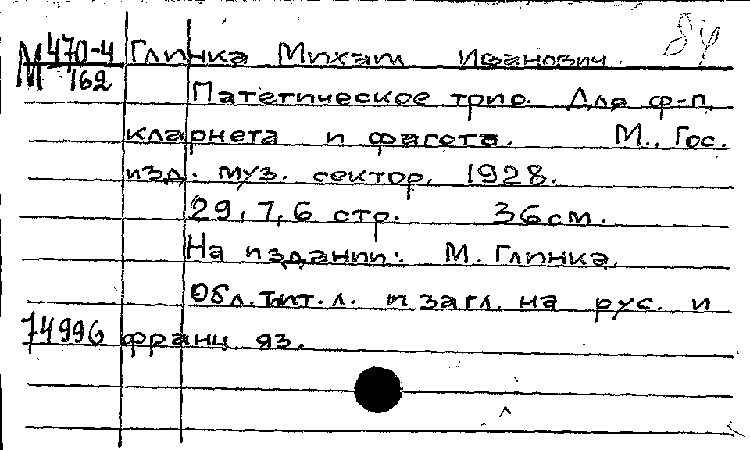 М 470-4 Глинка Михаил Иванович. 84
162 Патетическое трио. Для ф-п,
кларнета и фагота. М., Гос.
изд. муз. сектор, 1928.
29, 7, 6 стр. 36см.
На издании: М. Глинка.
Обл. тит. л. и загл. на рус. и
74996 франц. яз.